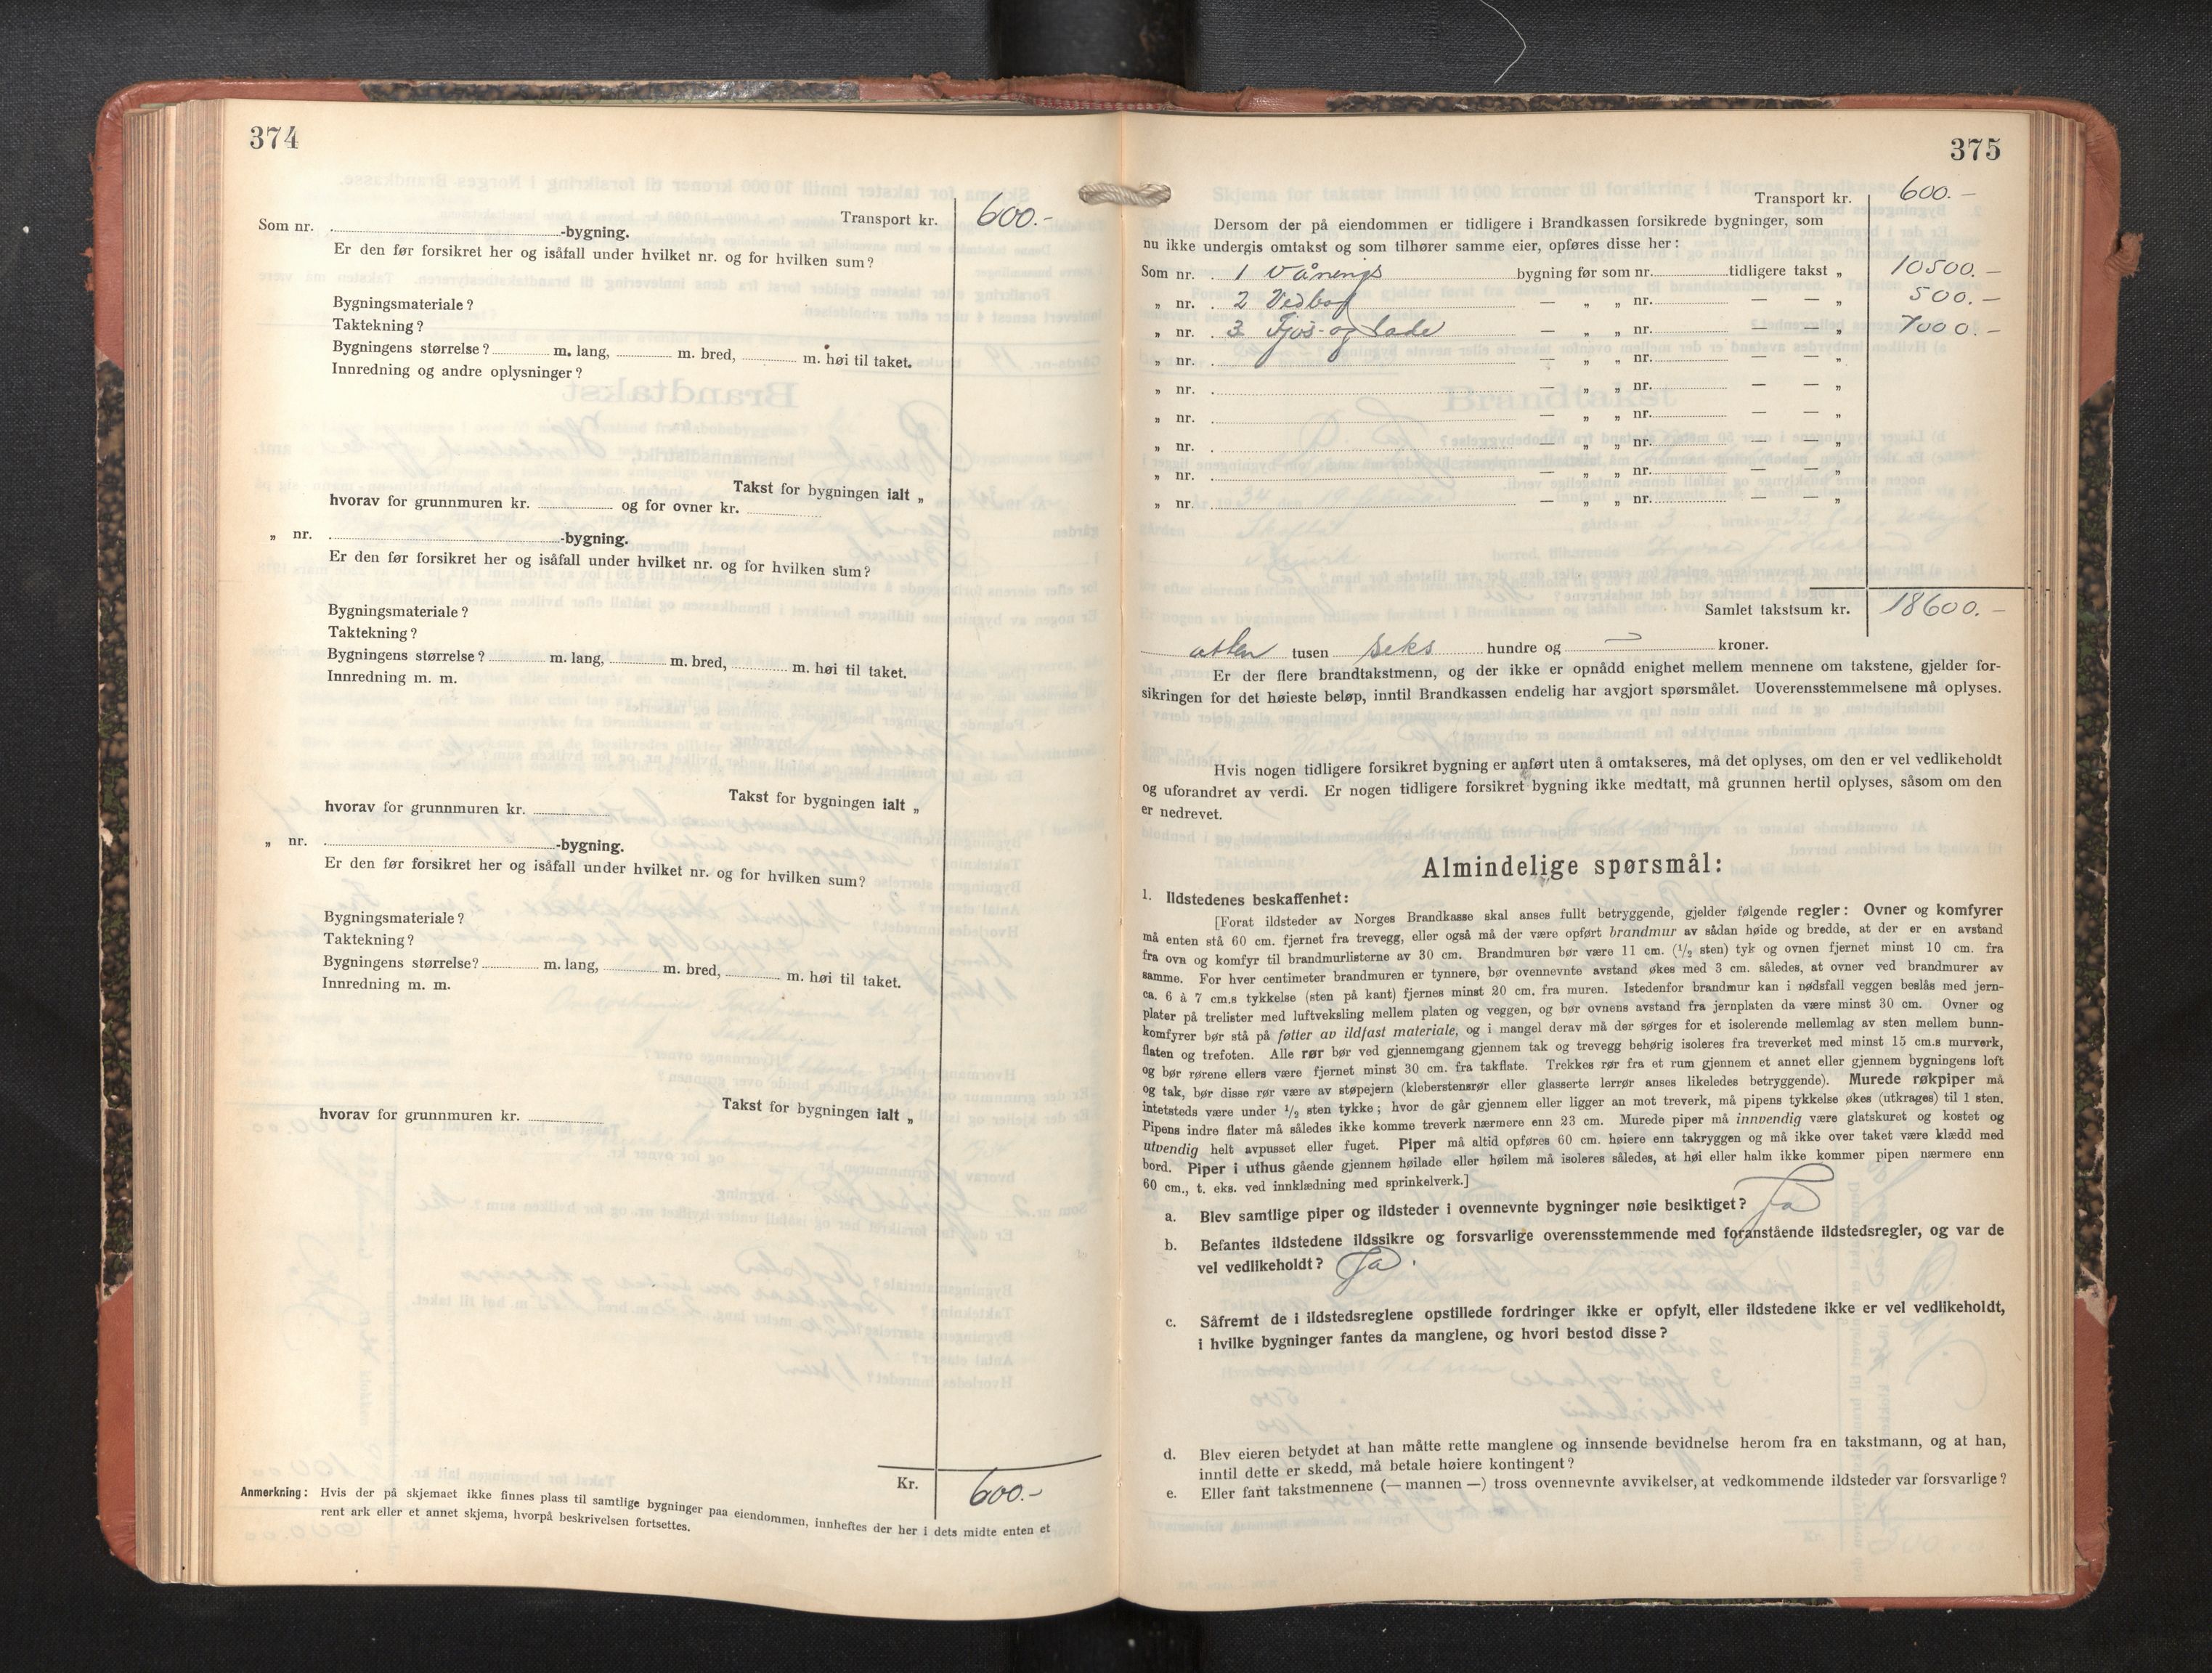 374
Transport kr. 600.-
Som nr. -bygning.
Er den før forsikret her og isåfall under hvilket nr. og for hvilken sum?
Bygningsmateriale?
Taktekning?
Bygningens størrelse? m. lang, m. bred, m. høi til taket.
Innredning og andre oplysninger?
Takst for bygningen ialt „
hvorav for grunnmuren kr. og for ovner kr.
„ nr. -bygning.
Er den før forsikret her og isåfall under hvilket nr. og for hvilken sum?
Bygningsmateriale?
Taktekning?
Bygningens størrelse? m. lang, m. bred, m. høi til taket.
Innredning m. m.
Takst for bygningen ialt „
hvorav for grunnmuren kr.
„ nr. -bygning.
Er den før forsikret her og isåfall under hvilket nr. og for hvilken sum?
Bygningsmateriale?
Taktekning?
Bygningens størrelse? m. lang, m. bred, m. høi til taket.
Innredning m. m.
Takst for bygningen ialt „
hvorav for grunnmuren kr.
Kr. 600.-
Anmerkning: Hvis der på skjemaet ikke finnes plass til samtlige bygninger paa eiendommen, innheftes der her i dets midte enten et
rent ark eller et annet skjema, hvorpå beskrivelsen fortsettes.
375
Transport kr. 600.-
Dersom der på eiendommen er tidligere i Brandkassen forsikrede bygninger, som
nu ikke undergis omtakst og som tilhører samme eier, opføres disse her:
Som nr. 1 Vånings bygning før som nr. tidligere takst „ 10500.-
„ nr. 2 Vedbod — „ „ nr. — — „ 500.-
„ nr. 3 Fjos- og Lade — „ „ nr. — — „ 7000.-
„ nr. — „ „ nr. — — „
„ nr. — „ „ nr. — — „
„ nr. — „ „ nr. — — „
„ nr. — „ „ nr. — — „
„ nr. — „ „ nr. — — „
„ nr. — „ „ nr. — — „
Samlet takstsum kr. 18600.-
atten tusen seks hundre og — kroner.
Er der flere brandtakstmenn, og der ikke er opnådd enighet mellem mennene om takstene, gjelder for-
sikringen for det høieste beløp, inntil Brandkassen endelig har avgjort spørsmålet. Uoverensstemmelsene må oplyses.
Hvis nogen tidligere forsikret bygning er anført uten å omtakseres, må det oplyses, om den er vel vedlikeholdt
og uforandret av verdi. Er nogen tidligere forsikret bygning ikke medtatt, må grunnen hertil oplyses, såsom om den
er nedrevet.
Almindelige spørsmål:
1. Ildstedenes beskaffenhet:
[Forat ildsteder av Norges Brandkasse skal anses fullt betryggende, gjelder følgende regler: Ovner og komfyrer
må enten stå 60 cm. fjernet fra trevegg, eller også må der være opført brandmur av sådan høide og bredde, at der er en avstand
fra ovn og komfyr til brandmurlisterne av 30 cm. Brandmuren bør være 11 cm. (1/2 sten) tyk og ovnen fjernet minst 10 cm. fra
samme. For hver centimeter brandmuren er tynnere, bør ovennevnte avstand økes med 3 cm. således, at ovner ved brandmurer av
ca. 6 à 7 cm.s tykkelse (sten på kant) fjernes minst 20 cm. fra muren. Istedenfor brandmur kan i nødsfall veggen beslås med jern-
plater på trelister med luftveksling mellem platen og veggen, og bør ovnens avstand fra jernplaten da være minst 30 cm. Ovner og
komfyrer bør stå på føtter av ildfast materiale, og i mangel derav må der sørges for et isolerende mellemlag av sten mellem bunn-
flaten og trefoten. Alle rør bør ved gjennemgang gjennem tak og trevegg behørig isoleres fra treverket med minst 15 cm.s murverk,
og bør rørene ellers være fjernet minst 30 cm. fra takflate. Trekkes rør fra et rum gjennem et annet eller gjennem bygningens loft
og tak, bør disse rør være av støpejern (kleberstensrør eller glasserte lerrør anses likeledes betryggende). Murede røkpiper må
intetsteds være under 1/2 sten tykke; hvor de går gjennem eller ligger an mot treverk, må pipens tykkelse økes (utkrages) til 1 sten.
Pipens indre flater må således ikke komme treverk nærmere enn 23 cm. Murede piper må innvendig være glatskuret og kostet og
utvendig helt avpusset eller fuget. Piper må altid opføres 60 cm. høiere enn takryggen og må ikke over taket være klædd med
bord. Piper i uthus gående gjennem høilade eller høilem må isoleres således, at høi eller halm ikke kommer pipen nærmere enn
60 cm., t. eks. ved innklædning med sprinkelverk.]
a. Blev samtlige piper og ildsteder i ovennevnte bygninger nøie besiktiget? Ja
b. Befantes ildstedene ildssikre og forsvarlige overensstemmende med foranstående ildstedsregler, og var de
vel vedlikeholdt? Ja.
c. Såfremt de i ildstedsreglene opstillede fordringer ikke er opfylt, eller ildstedene ikke er vel vedlikeholdt,
i hvilke bygninger fantes da manglene, og hvori bestod disse?
d. Blev eieren betydet at han måtte rette manglene og innsende bevidnelse herom fra en takstmann, og at han,
inntil dette er skedd, må betale høiere kontingent?
e. Eller fant takstmennene (— mannen —) tross ovennevnte avvikelser, at vedkommende ildsteder var forsvarlige?